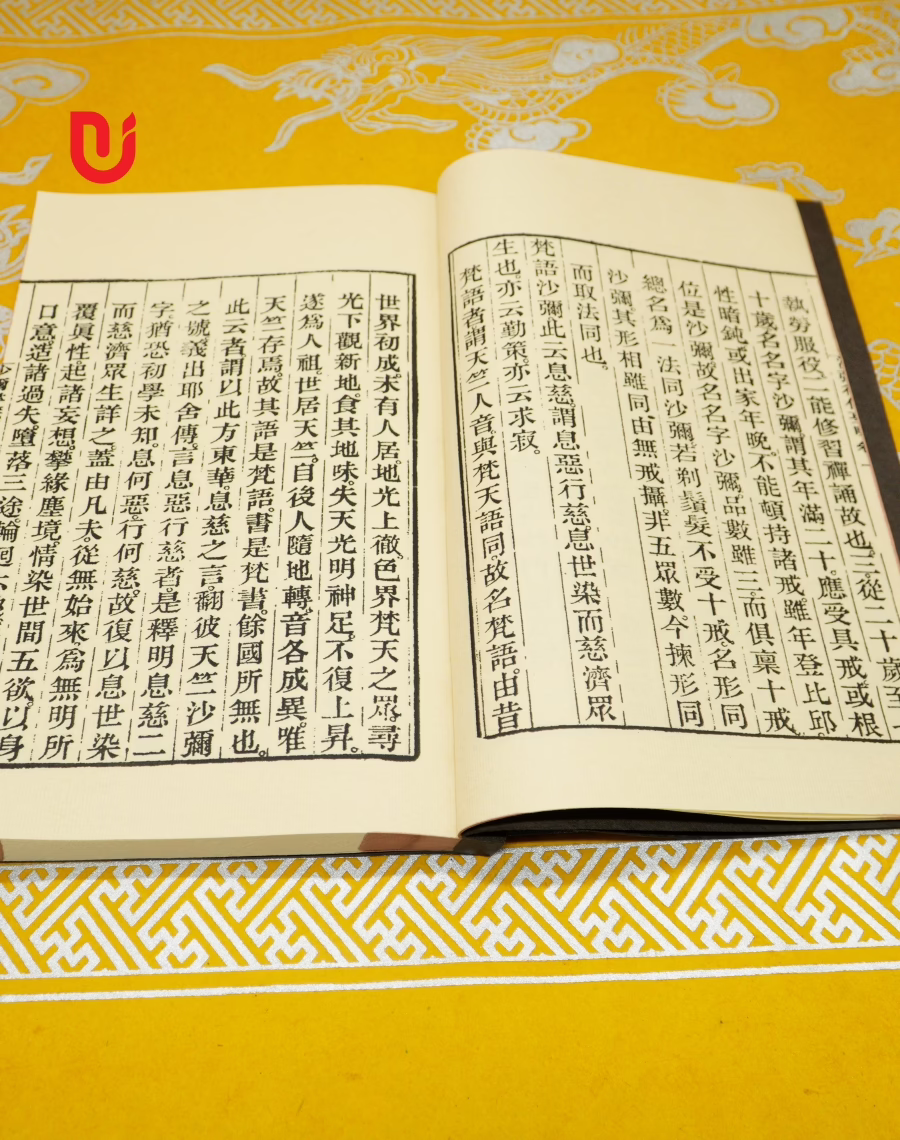 執勞服役。二能修習禪誦故也。三從二十歲至
十歲名名字沙彌謂其年滿二十。應受具戒或根
性暗鈍。或出家年晚。不能頓持諸戒。雖年登比邱
位是沙彌故名名字沙彌品數雖三。而俱稟十戒
總名爲一法同沙彌若剃鬚髮不受十戒。名形同
沙彌。其形相雖同由無戒攝。非五眾數。今揀形同
而取法同也。
梵語沙彌此云息慈。謂息惡行慈。息世染而慈濟眾
生也。亦云勤策。亦云求寂。
梵語者謂天竺人音。與梵天語同。故名梵語。由昔
世界初成。未有人居。地光上徹。色界梵天之眾。尋
光下觀新地。食其地味。失天光明神足。不復上昇。
遂爲人祖。世居天竺。自後人隨地轉。音各成異。唯
天竺存焉。故其語是梵語。書是梵書。餘國所無也。
此云者。謂以此方東華。息慈之言。翻彼天竺沙彌
之號。義出耶舍傳。言息惡行慈者。是釋明息慈二
字。猶恐初學未知。息何惡。行何慈。故復以息世染
而慈濟眾生詳之。葢由凡夫。從無始來。爲無明所
覆眞性。起諸妄想。攀緣塵境。情染世間五欲。以身
口意。造諸過失。墮落三途。輪迴